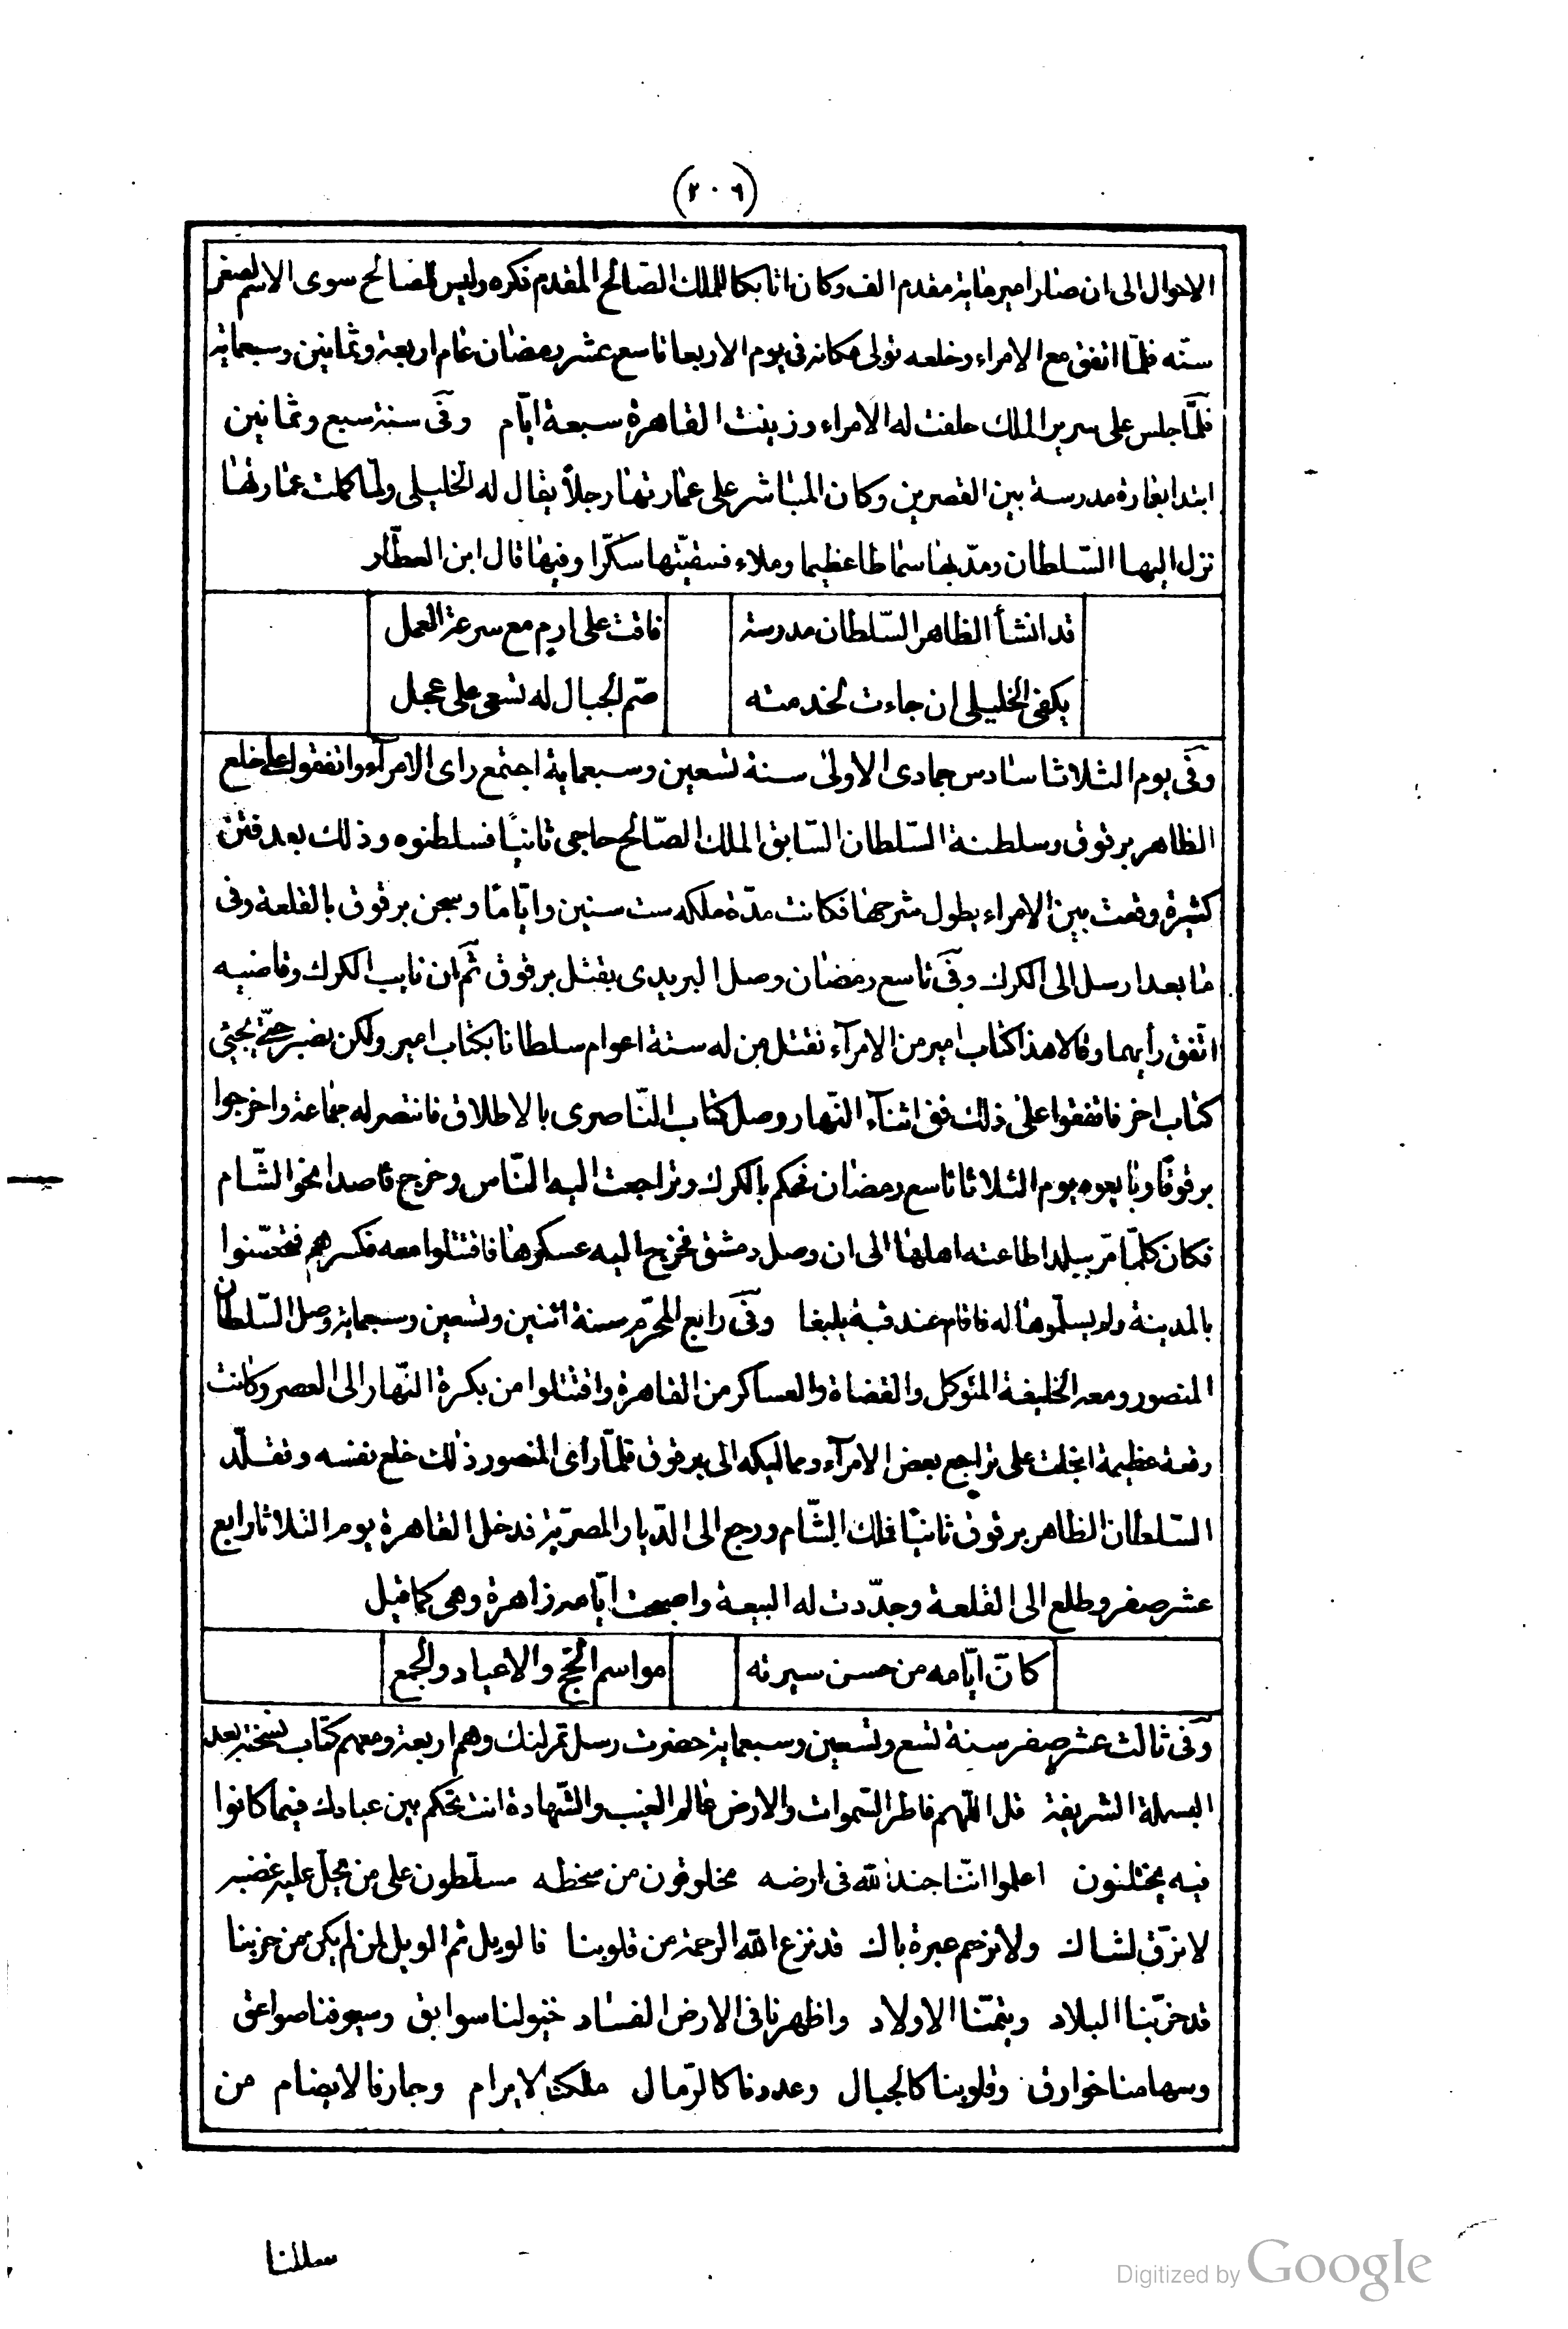 (٢٠٩)
الاحوال الى ان صار امير ماية مقدم الف وكان اتابكا للملك الصّالح المقدم ذكره وليس للصّالح سوى الاسم لصغر
سنّه فلمّا اتفق مع الامراء وخلعه تولى مكانه فى يوم الاربعا تاسع عشر رمضان عام اربعة وثمانين وسبعماية
فلمّا جلس على سرير الملك حلفت له الامراء وزينت القاهرة سبعة ايّام وفى سنة سبع وثمانين
ابتدا بعمارة مدرسة بين القصرين وكان المباشر على عمارتها رجلاً يقال له الخليلى ولمّا كملت عمارتها
نزل اليها السّلطان ومدّ بها سماطا عظيما وملاء فسقيّتها سكّرا وفيها قال ابن العطّار
قد انشأ الظاهر السّلطان مدرسة فاقت على ارم مع سرعة العمل
يكفى الخليلى ان جاءت لخدمته صّم الجبال له تسعى على عجل
وفى يوم الثلاثا سادس جمادى الاولى سنة تسعين وسبعماية اجتمع راى الامرآء واتفقوا على خلع
الظاهر برقوق وسلطنة السّلطان السّابق الملك الصّالح حاجى ثانيًا فسلطنوه وذلك بعد فتن
كثيرة وقعت بين الامراء يطول شرحها فكانت مدّة ملكه ست سنين وايّامًا وسجن برقوق بالقلعة وفى
ما بعد ارسل الى الكرك وفى تاسع رمضان وصل البريدى بقتل برقوق ثم ان نايب الكرك وقاضيه
اتّفق رأيهما وقالا هذا كتاب امير من الامرآء نقتل من له ستة اعوام سلطانا بكتاب امير ولكن نصبر حتّى يجئ
كتاب اخر فاتفقوا على ذلك ففى اثنآء النّهار وصل كتاب النّاصرى بالاطلاق فانتصر له جماعة واخرجوا
برقوقًا وبايعوه يوم الثلاثا تاسع رمضان فحكم بالكرك وتراجعت اليه النّاس وخرج قاصدا نحو الشّام
فكان كلّما مرّ ببلد اطاعته اهلها الى ان وصل دمشق فخرج اليه عسكرها فاقتتلوا معه فكسرهم فتحصّنوا
بالمدينة ولم يسلّموها له فاقام عند قبة يلبغا وفى رابع المحرّم سنة اثنين وتسعين وسبعماية وصل السّلطان
المنصور ومعه الخليفة المتوكل والقضاة والعساكر من القاهرة واقتتلوا من بكرة النّهار الى العصر وكانت
وقعة عظيمة انجلت على تراجع بعض الامرآء ومماليكه الى برقوق فلمّا رأى المنصور ذلك خلع نفسه وتقلّد
السّلطان الظاهر برقوق ثانيًا فملك الشّام ورجع الى الدّيار المصريّة فدخل القاهرة يوم الثلاثا رابع
عشر صفر وطلع الى القلعة وجدّدت له البيعة واصبحت ايّامه زاهرة وهى كما قيل
كانّ ايّامه من حسن سيرته مواسم الحّج والاعياد والجمع
وفى ثالث عشر صفر سنة تسع وتسعين وسبعماية حضرت رسل تمرلنك وهم اربعة ومعهم كتاب نسخته بعد
البسملة الشريفة قل اللّهم فاطر السّموات والارض عالم الغيب والشّهادة انت تحكم بين عبادك فيما كانوا
فيه يختلفون اعلموا انّنا جند الله فى ارضه مخلوقون من سخطه مسلّطون على من يحلّ عليه غضبه
لا نرّق لشاك ولا نرحم عبرة باك قد نزع الله الرحمة من قلوبنا فالويل ثم الويل لمن لم يكن من حزبنا
قد خرّبنا البلاد ويتمّنا الاولاد واظهرنا فى الارض الفساد خيولنا سوابق وسيوفنا صواعق
وسهامنا خوارق وقلوبنا كالجبال وعددنا كالرّمال ملكنا لا يرام وجارنا لا يضام من
سالمنا
Digitized by Google